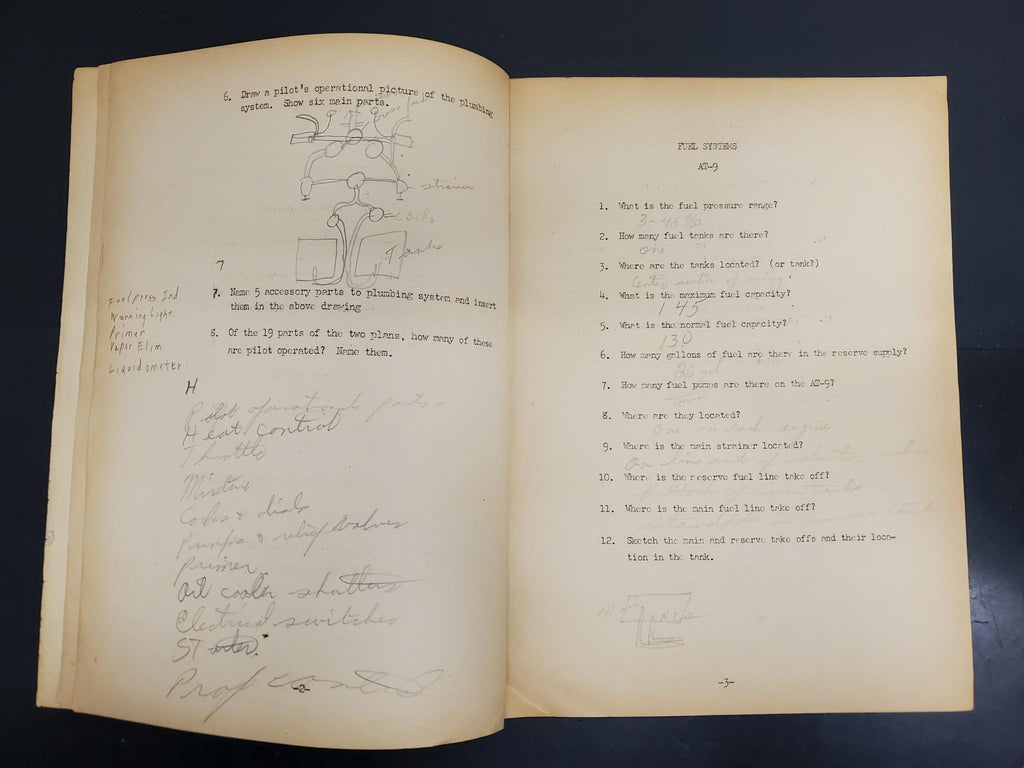 6. Draw a pilot's operational picture of the plumbing
system. Show six main parts.
strainer
cocks
Tanks
7
7. Name 5 accessory parts to plumbing system and insert
them in the above drawing
Fuel press Ind
Warning Light.
Primer
Vapor Elim
Liquidometer
8. Of the 19 parts of the two plans, how many of these
are pilot operated? Name them.
H
Pilot operational parts.
Heat control
Throttle
Mixture
Cocks & dials
Pumps & relief valves
Primer
Oil cooler shutters
Electrical switches
Starter.
Prop control
-2-
FUEL SYSTEMS
AT-9
1. What is the fuel pressure range?
2. How many fuel tanks are there?
one
3. Where are the tanks located? (or tank?)
Center section of wing
4. What is the maximum fuel capacity?
145
5. What is the normal fuel capacity?
130
6. How many gallons of fuel are there in the reserve supply?
26 gal
7. How many fuel pumps are there on the AT-9?
two
8. Where are they located?
One on each engine.
9. Where is the main strainer located?
On line out of selector valve.
10. Where is the reserve fuel line take off?
bottom of
11. Where is the main fuel line take off?
Standpipe in
12. Sketch the main and reserve take offs and their loca-
tion in the tank.
Main
res
-3-